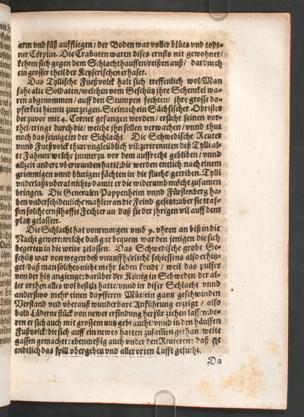 arm und füß aufffliegen: der Boden war voller blůts und todte-
ner Cörplen. Die Crabaten waren dises ernsts nit gewohnet/
kehren sich gegen dem Schlachthauffen/reißen auß/ dardurch
ein grosser theil der Keyserischen erhaset.
Das Tyllische Fueßvolck halt sich treffenlich wol/ Man
sahe alte Soldaten/ welchen vom Geschütz ihre Schenckel wa-
ren abgenommen/ auff den Stumpen fechten/ ihre grosse da-
pferkeit hiemit zuerzeigen. Steinach ein Sächsischer Obrister
der zuvor mit 4. Cornet gefangen worden/ ersicht seinen vor-
thel/ durch die/ welche ihn sollen verwachen/ unnd thut
noch das seinigen der Schlacht. Die Schwedische Reuter
unnd Fueßvolck thut unglaublich vil: zertrennten deß Tylli al-
te Fahnen/ welche jmmerzu vor dem auffrecht gebliben/ unnd
allzeit andere überwunden hatt/ die werden entlich nach einem
grimmigen unnd blutigen fächten in die flucht getriben. Tylli
underlaßt überal nichts damit er die widerumb möcht zusamen
bringen. Die Generaln Pappenheim unnd Fürstenberg ha-
ben underscheidenliche mahlen an die Feind gesetzt: aber sie traf-
fen solche ernsthaffte Fechter an/ daß sie der jhrigen vil auff dem
platz gelassen.
Die Schlacht hat von morgen umb 9. uhren an biß in die
Nacht gewert: welche dan gar bequem war den jenigen die sich
begerten in die weite zulassen. Das Schwedische grobe Ge-
schütz war von wegen deß unauffhörliche schiessens also erhitz-
get/ daß man solches nicht mehr laden konde/ weil das pulfer
von der hitz angieng: darüber der König in Schweden der al-
ler orthen alles wol bestelt hatte/
anderstwo mehr einen dapfferen Můt/ ein gantz geschwinden
Verstand und überauß wunderbare Anführung erzeigt/ also
bald Läderne stück von newer erfindung herfür ziehen lassen: de-
ren er sich auch mit grossem nutz gebraucht/
Fußvolck die sich auff ein newes hatten zusamen gethan/ weite
gassen gemachet: ebenmessig auch under den Reuteren: daß sie
endtlich das spill übergeben und aller orten Lufft gesucht.
Da